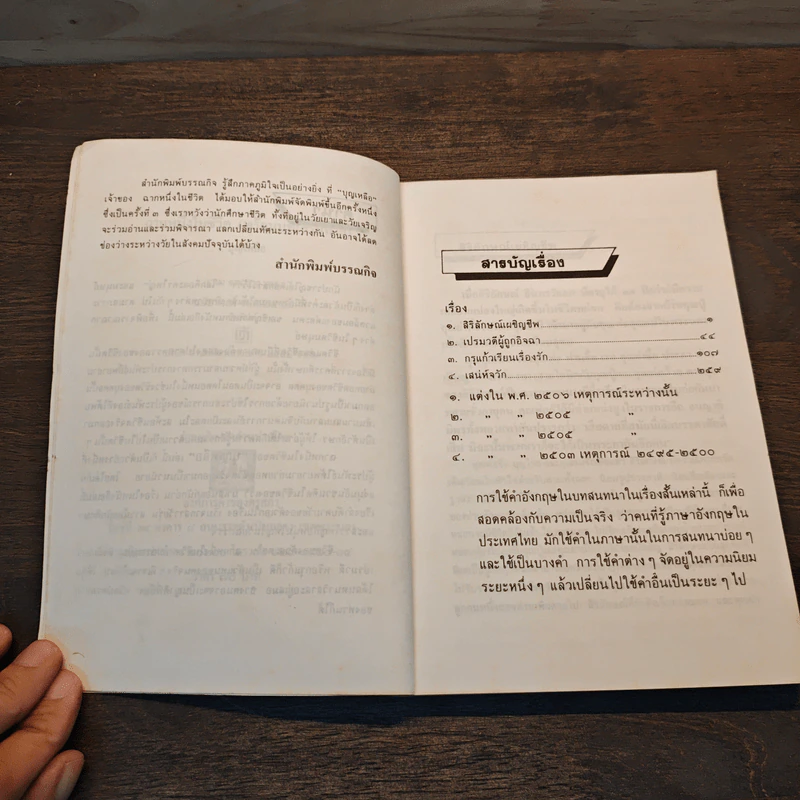 สำนักพิมพ์บรรณกิจ รู้สึกภาคภูมิใจเป็นอย่างยิ่ง ที่ "บุญเหลือ"
เจ้าของ ฉากหนึ่งในชีวิต ได้มอบให้สำนักพิมพ์จัดพิมพ์ขึ้นอีกครั้งหนึ่ง
ซึ่งเป็นครั้งที่ ๓ ซึ่งเราหวังว่านักศึกษาชีวิต ทั้งที่อยู่ในวัยเยาและวัยเจริญ
จะร่วมอ่านและร่วมพิจารณา แลกเปลี่ยนทัศนะระหว่างกัน อันอาจได้ลด
ช่องว่างระหว่างวัยในสังคมปัจจุบันได้บ้าง
สำนักพิมพ์บรรณกิจ
สารบัญเรื่อง
เรื่อง
๑. สิริลักษณ์เผชิญชีพ ๑
๒. เปรมวดีผู้ถูกอิจฉา ๔๔
๓. กรุแก้วเรียนเรื่องรัก ๑๐๗
๔. เสน่ห์จวัก ๒๕๙
๑. แต่งใน พ.ศ. ๒๕๐๖ เหตุการณ์ระหว่างนั้น
๒. " " ๒๕๐๕ "
๓. " " ๒๕๐๕ "
๔. " " ๒๕๐๓ เหตุการณ์ ๒๔๙๕-๒๕๐๐
การใช้คำอังกฤษในบทสนทนาในเรื่องสั้นเหล่านี้ ก็เพื่อ
สอดคล้องกับความเป็นจริง ว่าคนที่รู้ภาษาอังกฤษใน
ประเทศไทย มักใช้คำในภาษานั้นในการสนทนาบ่อย ๆ
และใช้เป็นบางคำ การใช้คำต่าง ๆ จัดอยู่ในความนิยม
ระยะหนึ่ง ๆ แล้วเปลี่ยนไปใช้คำอื่นเป็นระยะ ๆ ไป